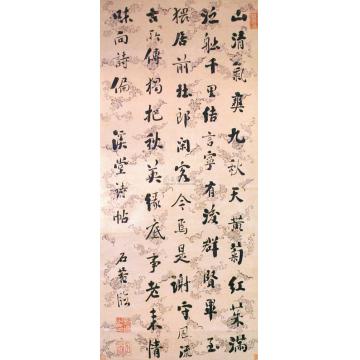 山清氣爽九秋天黃菊紅茱滿
泛船千里結言寧有後群賢畢至
猥居前杜郎閑客今焉是謝守風流
古所傳獨把秋英緣底事老來情
味向詩偏 溪堂詩帖 石菴臨